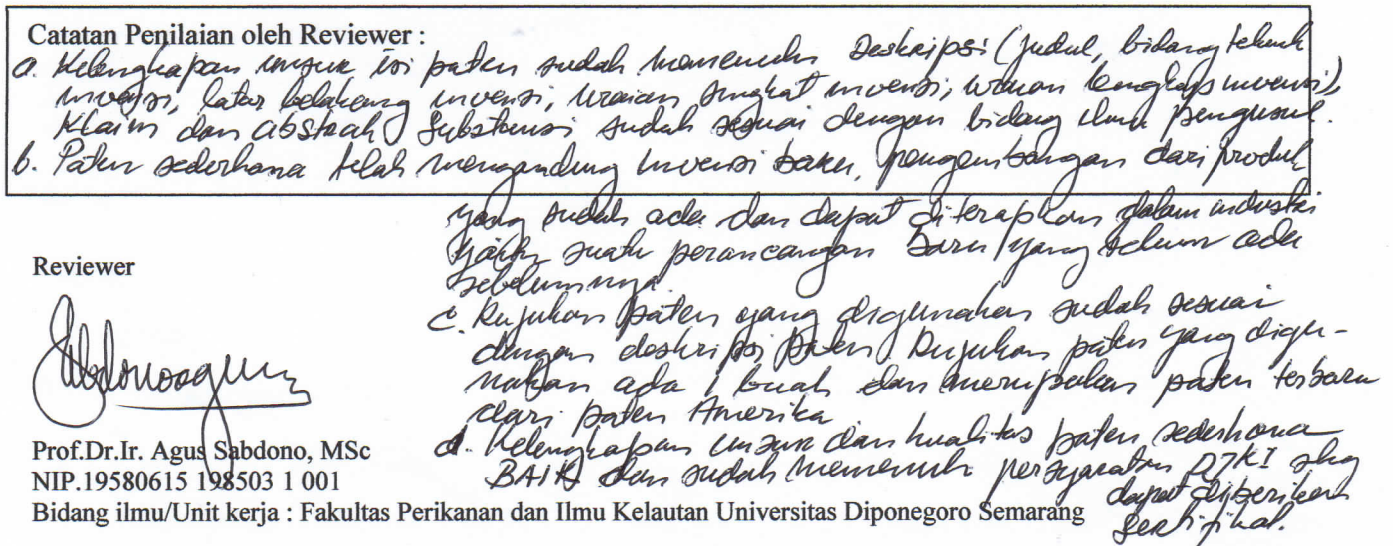 Catatan Penilaian oleh Reviewer :
a. Kelengkapan unsur isi paten sudah memenuhi Deskripsi (judul, bidang teknik
invensi, latar belakang invensi, uraian singkat invensi, uraian lengkap invensi),
Klaim dan abstrak. Substansi sudah sesuai dengan bidang ilmu pengusul.
b. Paten sederhana telah mengandung invensi baru, pengembangan dari produk
yang sudah ada dan dapat diterapkan dalam industri
yaitu suatu perancangan baru yang belum ada
sebelumnya
c. Rujukan paten yang digunakan sudah sesuai
dengan deskripsi paten. Rujukan paten yang digu-
nakan ada 1 buah dan merupakan paten terbaru
dari paten Amerika
d. Kelengkapan unsur dan kualitas paten sederhana
BAIK dan sudah memenuhi persyaratan DJKI shg
dapat diberikan
sertifikat.
Reviewer
Prof.Dr.Ir. Agus Sabdono, MSc
NIP.19580615 198503 1 001
Bidang ilmu/Unit kerja : Fakultas Perikanan dan Ilmu Kelautan Universitas Diponegoro Semarang